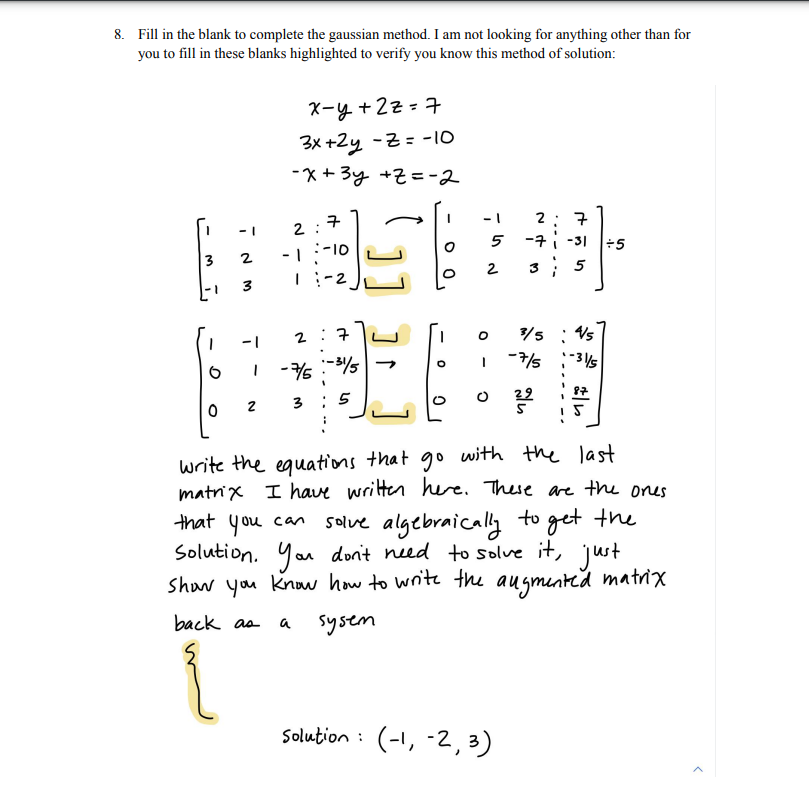 8. Fill in the blank to complete the gaussian method. I am not looking for anything other than for
you to fill in these blanks highlighted to verify you know this method of solution:
x-y+2z=7
3x+2y-z=-10
-x+3y+z=-2
[1 -1 2 : 7] → [1 -1 2 : 7]
[3 2 -1 : -10] [0 5 -7 : -31] ÷5
[-1 3 1 : -2] [0 2 3 : 5]
[1 -1 2 : 7] [1 0 3/5 : 4/5]
[0 1 -7/5 : -31/5] → [0 1 -7/5 : -31/5]
[0 2 3 : 5] [0 0 29/5 : 87/5]
write the equations that go with the last
matrix I have written here. These are the ones
that you can solve algebraically to get the
Solution. You don't need to solve it, just
Show you know how to write the augmented matrix
back as a sysem
{
Solution : (-1, -2, 3)